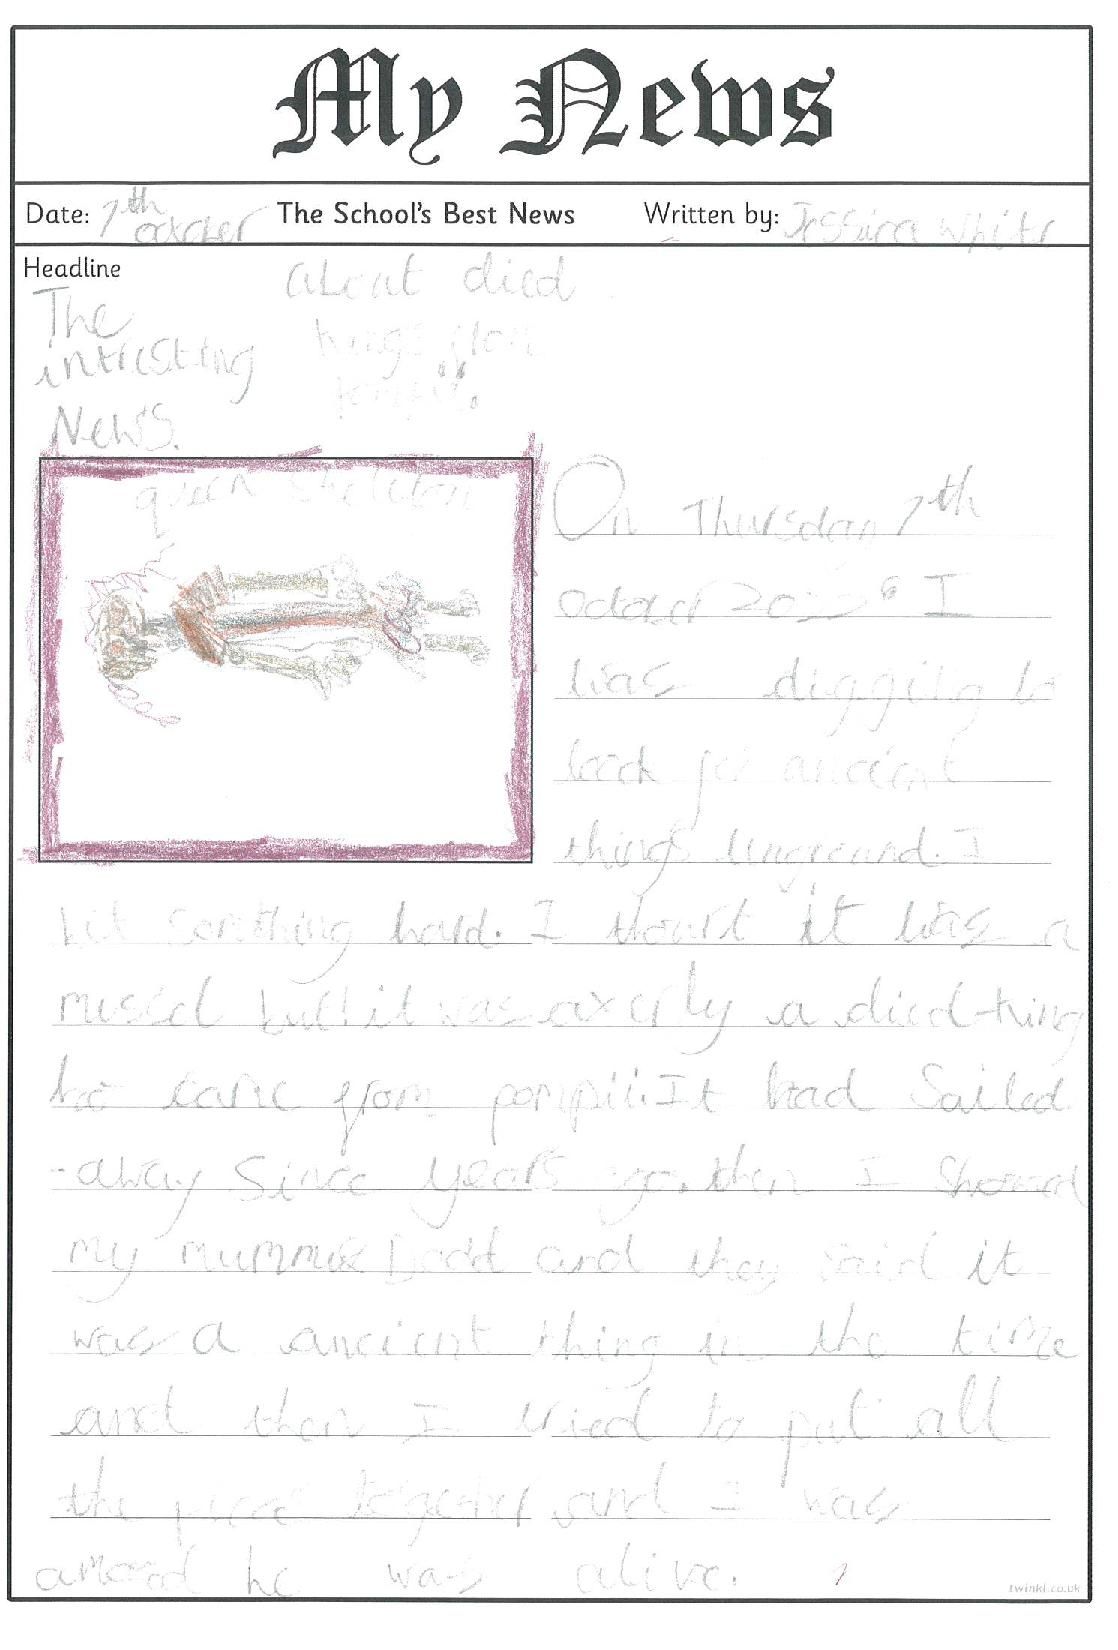 My News
Date: 7th october The School's Best News Written by: Jessica White
Headline
The
intresting
News.
about died
kings from
queen skeleton
On Thursday 7th
October I
was digging to
look for ancient
things unground. I
hit somthing hard. I thourt it was a
but it was axerly a died king
came from pompiii It had Sailed
away Since years ago. then I showed
my mum & Dad and they said it
was a ancient thing in the time
and then I tried to put all
the together and I was
amazed he was alive.
twinkl.co.uk